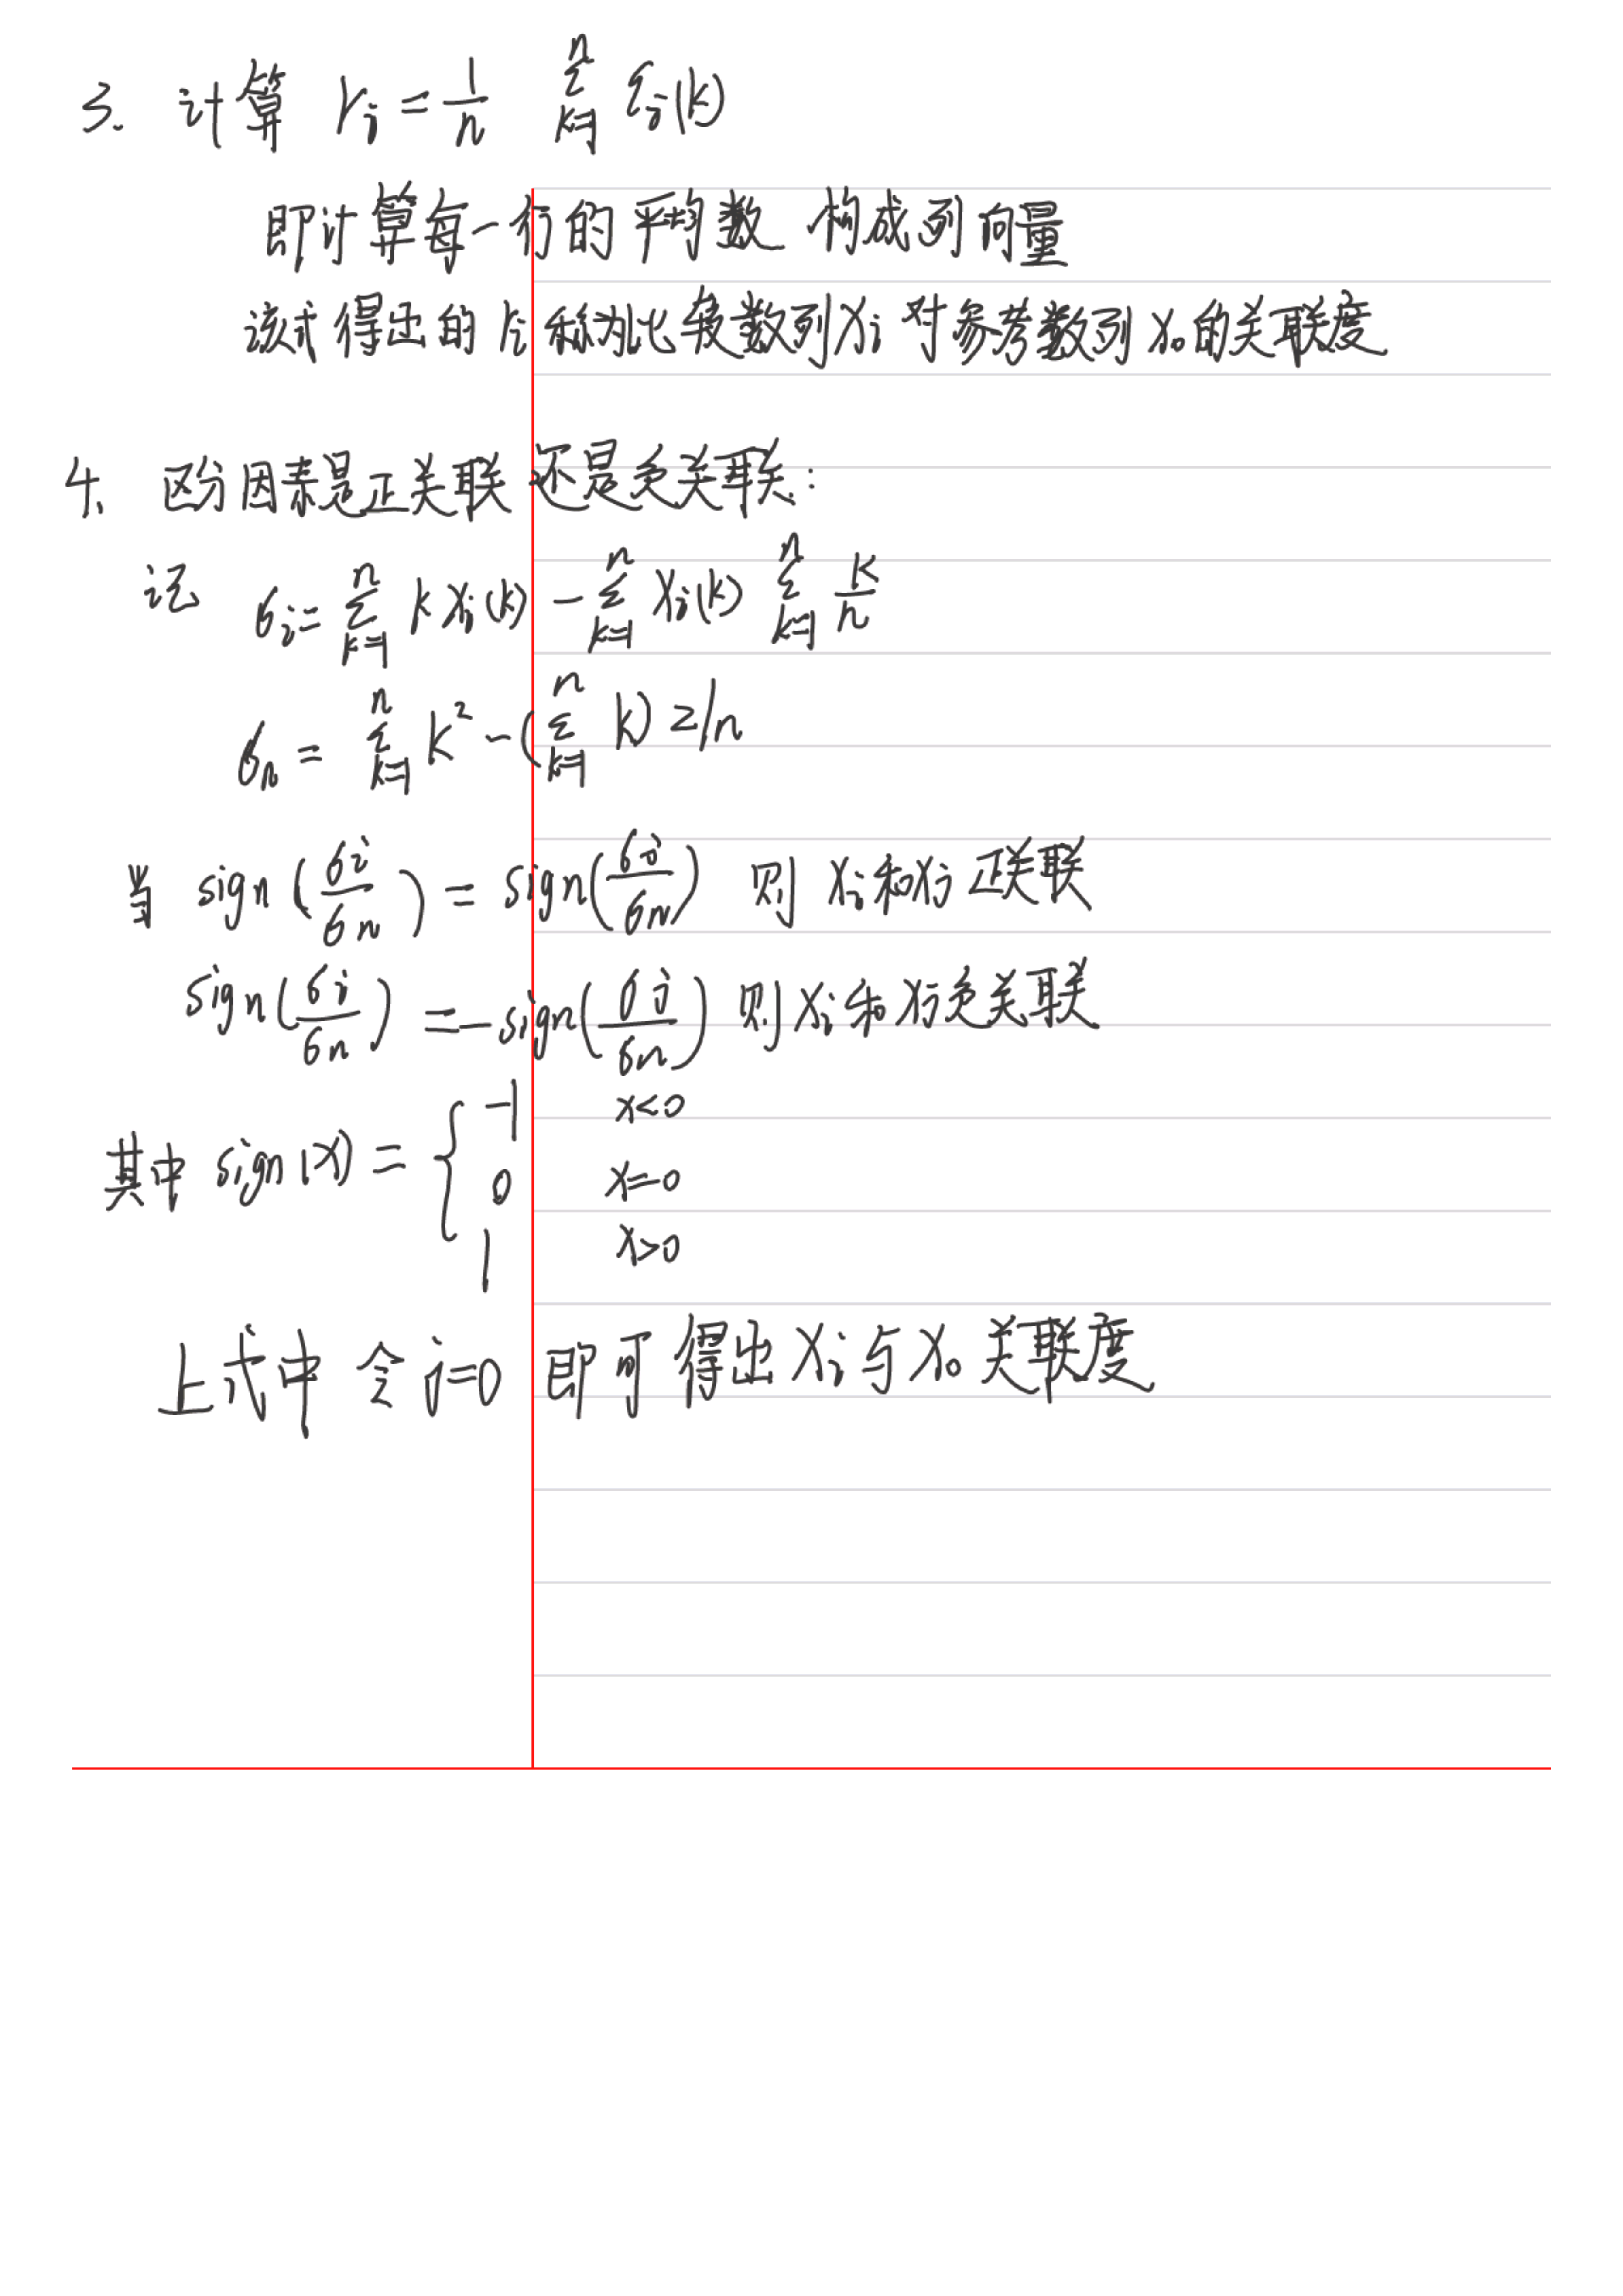 3. 计算 r_i = 1/n Σ_{k=1}^{n} ξ_i(k)
即计算每一行的平均数 构成列向量
该式得出的 r_i 称为比较数列 X_i 对参考数列 X_0 的关联度
4. 区分因素是正关联还是负关联:
记 σ_i = Σ_{k=1}^{n} k X_i(k) - Σ_{k=1}^{n} X_i(k) Σ_{k=1}^{n} k/n
σ_n = Σ_{k=1}^{n} k² - (Σ_{k=1}^{n} k) 2/n
当 sign(σi/σn) = sign(σj/σn) 则 X_i 和 X_j 正关联
sign(σi/σn) = -sign(σj/σn) 则 X_i 和 X_j 负关联
其中 sign(x) = { -1 x<0
0 x=0
1 x>0
上式中 令 j=0 即可得出 X_i 与 X_0 关联度